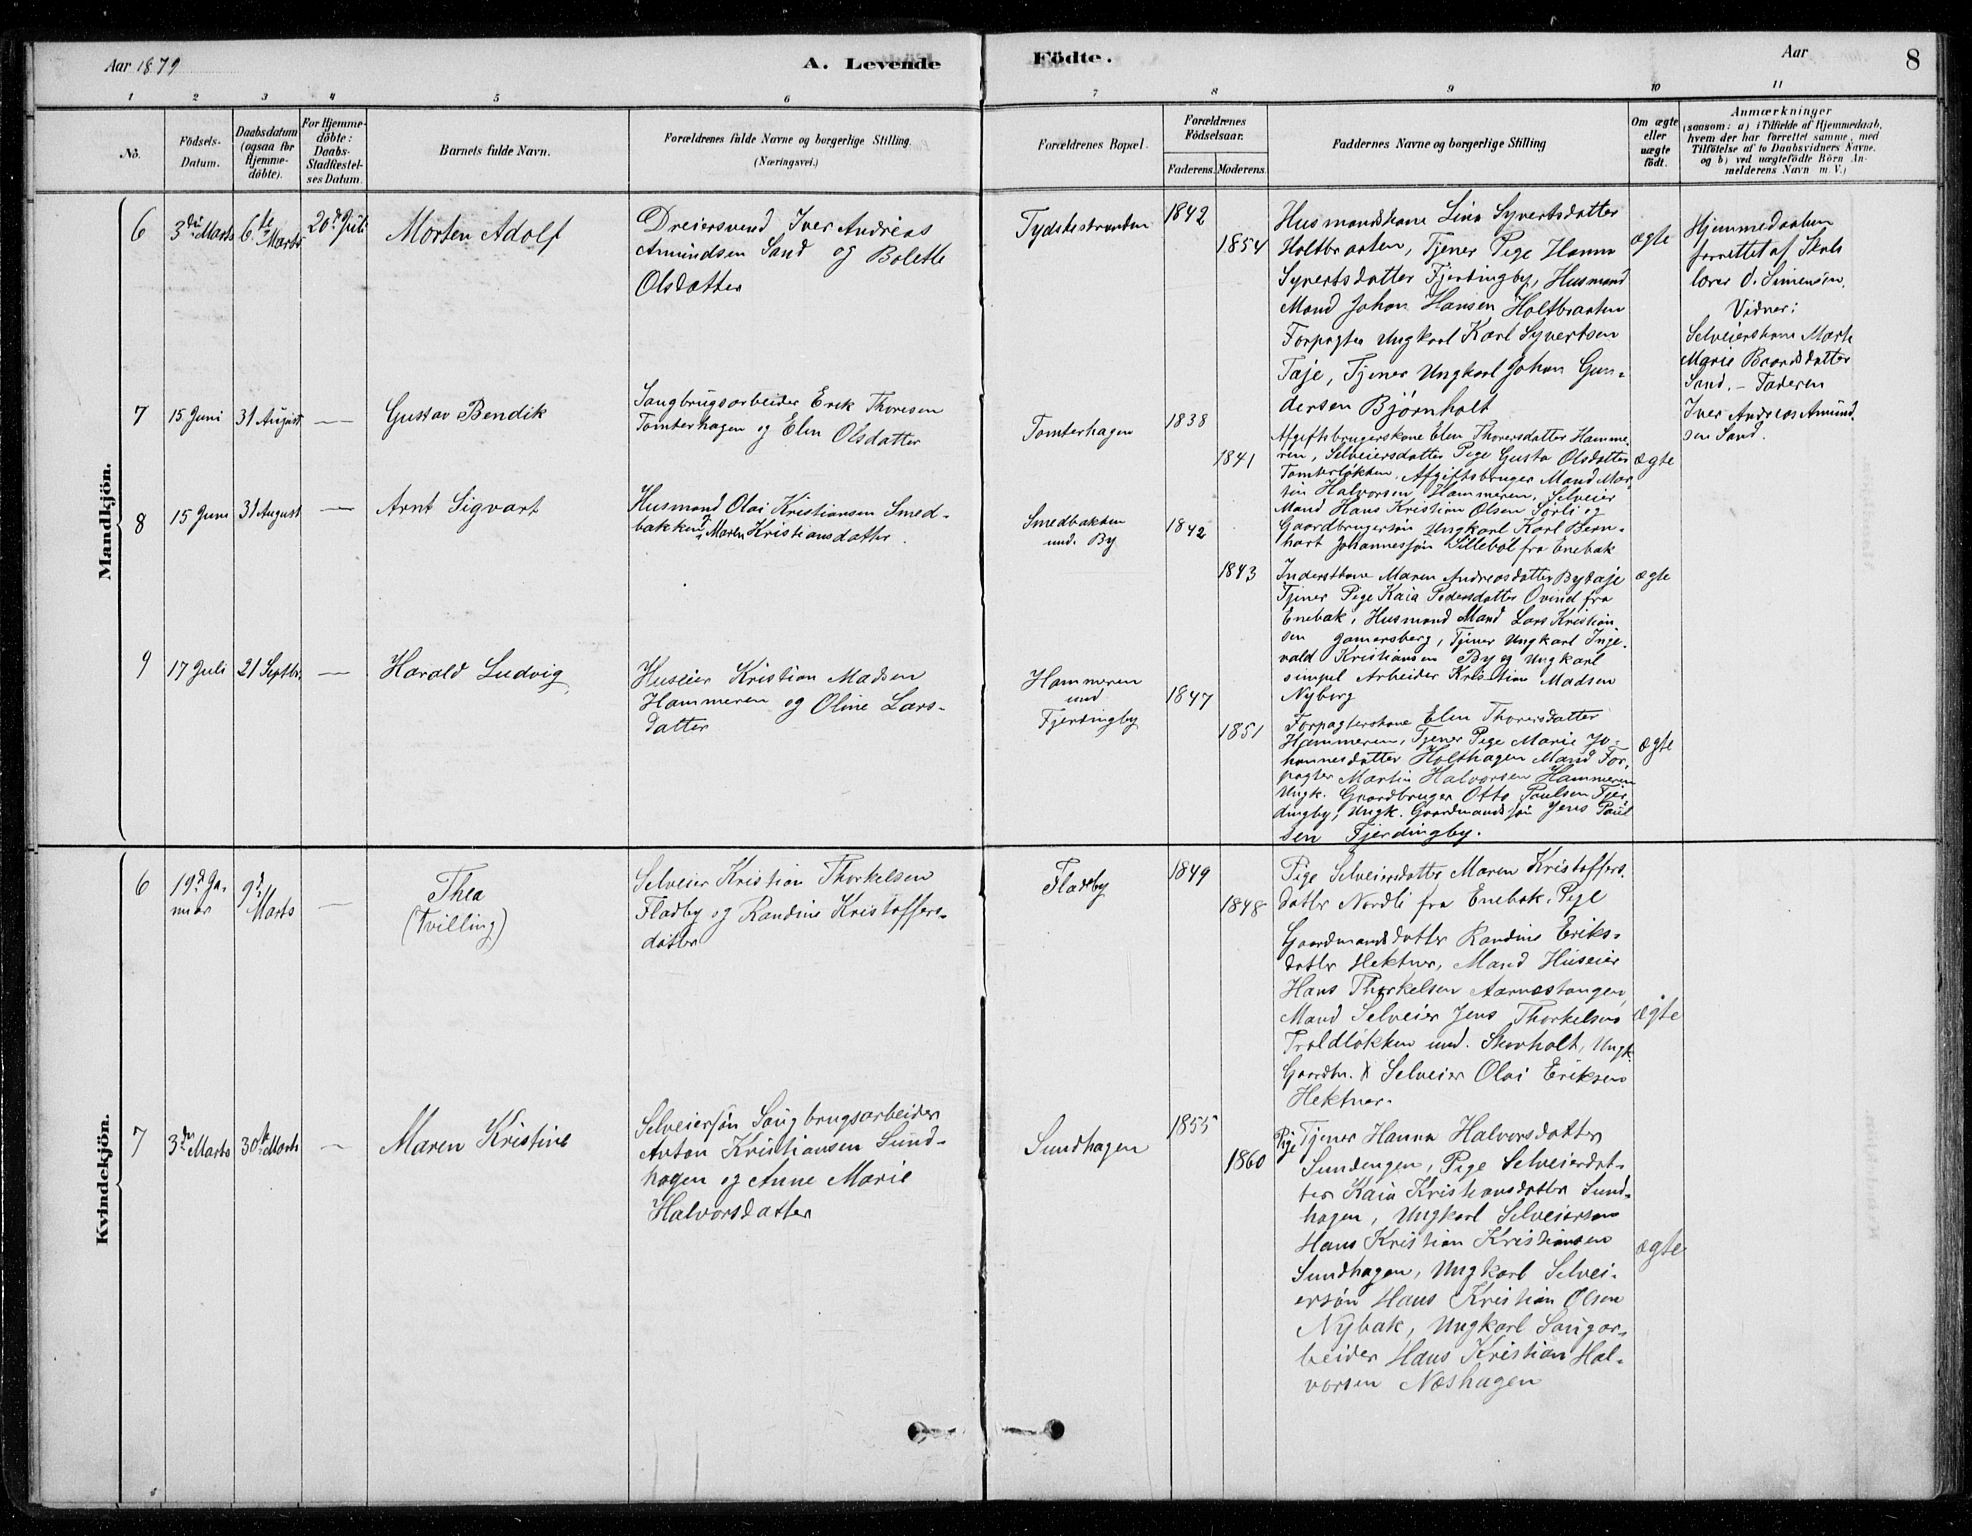 Aar 1879
A. Levende
Födte.
Aar
8
1 2 3 4 5 6 7 8 9 10 11
No.
Födsels-
Datum.
Daabsdatum
(ogsaa for
Hjemme-
döbte).
For Hjemme-
döbte:
Daabs-
Stadfæstel-
ses Datum.
Barnets fulde Navn.
Forældrenes fulde Navne og borgerlige Stilling.
(Næringsvei.)
Forældrenes Bopæl.
Forældrenes
Födselsaar.
Faderens. Moderens.
Faddernes Navne og borgerlige Stilling
Om ægte
eller
uægte
födt.
Anmærkninger
(saasom: a) i Tilfælde af Hjemmedaab,
hvem der har forrettet samme, med
Tilföielse af to Daabsvidners Navne.
og b) ved uægtefödte Börn An-
melderens Navn m. V.)
Mandkjön.
6
3die Marts
6te Marts
20de Juli
Morten Adolf
Dreiersvend Iver Andreas
Amundsen Sand og Bolette
Olsdatter
Tydskestranden
1842
1854
Husmandskone Lina Syvertsdatter
Holtbraaten, Tjener Pige Hanna
Syvertsdatter Fjerdingby, Husmand
Mand Johan Hansen Holtbraaten
Forpagter Ungkarl Karl Syvertsen
Taje, Tjener Ungkarl Johan Gun-
dersen Bjørnholt
ægte
Hjemmedaaben
forrettet af Skole
lærer O. Simensen.
Vidner:
Selveierskone Marthe
Marie Brandsdatter
Sand. - Faderen
Iver Andreas Amund-
sen Sand.
7
15 Juni
31 August
—
Gustav Bendik
Saugbrugsarbeider Erik Thoresen
Tomterhagen og Elen Olsdatter
Tomterhagen
1838
1841
Afgiftsbrugerskone Elen Thoversdatter Hamme-
ren, Selveiersdatter Pige Gusta Olsdatter
Tomterløkken, Afgiftsbruger Mand Mar-
tin Halvorsen Hammeren, Selveier
Mand Hans Kristian Olsen Sörli og
Gaardbrugersøn Ungkarl Karl Bern-
hart Johannessøn Lillebøl fra Enebak
ægte
8
15 Juni
31 August
—
Arnt Sigvart
Husmand Olai Kristiansen Smed-
bakken og Maren Kristiansdatter.
Smedbakken
und. By
1842
1843
Inderstkone Maren Andreasdatter Bytaje
Tjener Pige Kaia Pedersdatter Övind fra
Enebak, Husmand Mand Lars Kristian
sen Gamersberg, Tjener Ungkarl Inge-
vald Kristiansen By og Ungkarl
simpel Arbeider Kristian Madsen
Nyborg
ægte
9
17 Juli
21 Septbr.
—
Harald Ludvig
Huseier Kristian Madsen
Hammeren og Oline Lars-
datter
Hammeren
und
Fjerdingby
1847
1851
Forpagterskone Elen Thoversdatter
Hammeren, Tjener Pige Marie Jo-
hannesdatter Holthagen Mand For-
pagter Martin Halvorsen Hammeren
Ungk. Gaardbruger Otto Paulsen Fjer
dingby, Ungk. Gaardmandssøn Jens Paul
sen Fjerdingby.
ægte
Kvindekjön.
6
19de Ja-
nuar
9de
Marts
—
Thea
(Tvilling)
Selveier Kristian Thorkelsen
Fladby og Randine Kristoffers-
datter
Fladby
1849
1848
Pige Selveiersdatter Maren Kristoffers
datter Nordli fra Enebak. Pige
Gaardmandsdatter Randine Eriks-
datter Hektner, Mand Huseier
Hans Thorkelsen Aarnæstangen,
Mand Selveier Jens Thorkelsen
Troldløkken und. Skovholt, Ungk.
Gaardbr. & Selveier Olai Eriksen
Hektner.
ægte
7
3die Marts
30te Marts
—
Maren Kristine
Selveiersøn Saugbrugsarbeider
Anton Kristiansen Sund-
hagen og Anne Marie
Halvorsdatter
Sundhagen
1855
1860
Pige Tjener Hanna Halvorsdatter
Sundengen, Pige Selveierdat-
ter Kaia Kristiansdatter Sund-
hagen, Ungkarl Selveiersøn
Hans Kristian Kristiansen
Sundhagen, Ungkarl Selvei-
ersøn Hans Kristian Olsen
Nybak, Ungkarl Saugar-
beider Hans Kristian Hal-
vorsen Næshagen
ægte